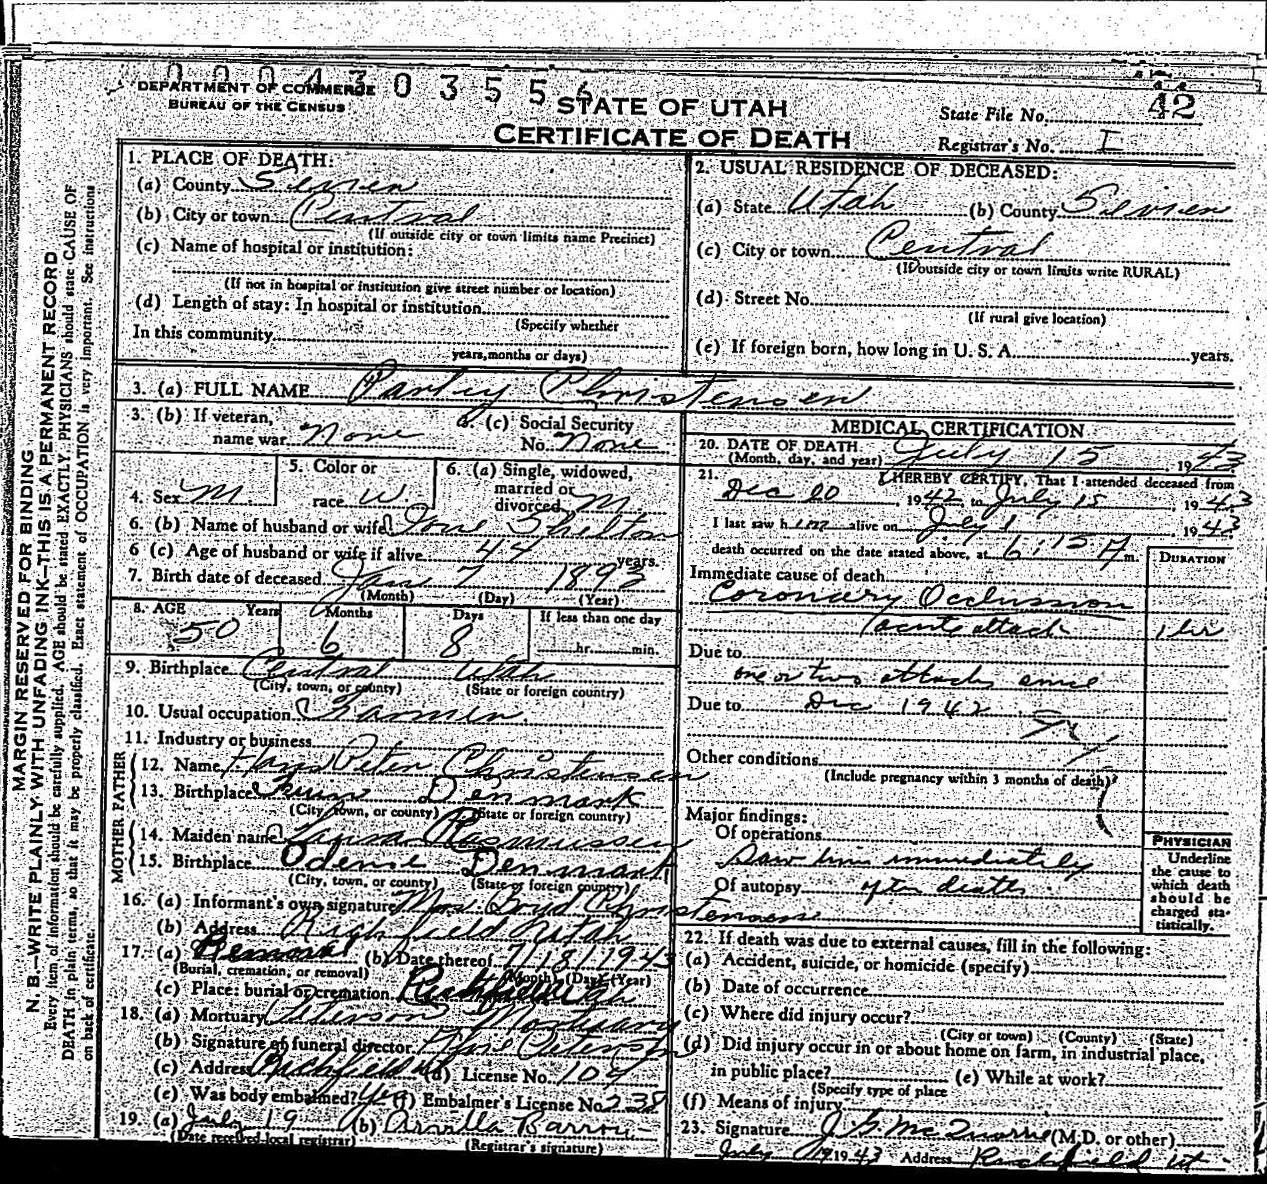 0 0 0 4 3 0 3 5 5
DEPARTMENT OF COMMERCE
BUREAU OF THE CENSUS
STATE OF UTAH
CERTIFICATE OF DEATH
State File No. 42
Registrar's No. I
MARGIN RESERVED FOR BINDING
N. B.—WRITE PLAINLY WITH UNFADING INK—THIS IS A PERMANENT RECORD
Every item of information should be carefully supplied. AGE should be stated EXACTLY. PHYSICIANS should state CAUSE OF
DEATH in plain terms, so that it may be properly classified. Exact statement of OCCUPATION is very important. See instructions
on back of certificate.
1. PLACE OF DEATH:
(a) County Sevier
(b) City or town Central
(If outside city or town limits name Precinct)
(c) Name of hospital or institution:
(If not in hospital or institution give street number or location)
(d) Length of stay: In hospital or institution
(Specify whether
In this community
years, months or days)
2. USUAL RESIDENCE OF DECEASED:
(a) State Utah (b) County Sevier
(c) City or town Central
(If outside city or town limits write RURAL)
(d) Street No.
(If rural give location)
(e) If foreign born, how long in U. S. A. years.
3. (a) FULL NAME Parley Christensen
3. (b) If veteran, name war None
(c) Social Security No. None
4. Sex M.
5. Color or race W
6. (a) Single, widowed, married or divorced M
6. (b) Name of husband or wife Ione Shelton
6 (c) Age of husband or wife if alive 44 years.
7. Birth date of deceased Jan 7 1893
(Month) (Day) (Year)
8. AGE Years Months Days If less than one day
50 6 8 hr. min.
9. Birthplace Central Utah
(City, town, or county) (State or foreign country)
10. Usual occupation Farmer
11. Industry or business
FATHER
12. Name Hans Peter Christensen
13. Birthplace Denmark
(City, town, or county) (State or foreign country)
MOTHER
14. Maiden name Rasmussen
15. Birthplace Odense Denmark
(City, town, or county) (State or foreign country)
16. (a) Informant's own signature Mrs. Boyd Christensen
(b) Address Richfield Utah
17. (a) Removal (b) Date thereof 7/18/1943
(Burial, cremation, or removal) (Month) (Day) (Year)
(c) Place: burial or cremation Richfield Utah
18. (a) Mortuary Peterson Mortuary
(b) Signature of funeral director Peterson
(c) Address Richfield (d) License No. 104
(e) Was body embalmed? Yes (f) Embalmer's License No. 238
19. (a) July 19 (b) Barron
(Date received local registrar) (Registrar's signature)
MEDICAL CERTIFICATION
20. DATE OF DEATH July 15 1943
(Month, day, and year)
21. I HEREBY CERTIFY, That I attended deceased from
Dec 20 1942 to July 15, 1943
I last saw him alive on July 1 1943
death occurred on the date stated above, at 6:15 m.
DURATION
Immediate cause of death
Coronary Occlussion
acute attack 1 hr
Due to
one or two attacks since
Due to Dec 1942
Other conditions
(Include pregnancy within 3 months of death)
Major findings:
Of operations
Saw him immediately
Of autopsy after death
PHYSICIAN
Underline
the cause to
which death
should be
charged sta-
tistically.
22. If death was due to external causes, fill in the following:
(a) Accident, suicide, or homicide (specify)
(b) Date of occurrence
(c) Where did injury occur?
(City or town) (County) (State)
(d) Did injury occur in or about home on farm, in industrial place,
in public place? (e) While at work?
(Specify type of place
(f) Means of injury
23. Signature J G McQuarrie (M.D. or other)
July 1943 Address Richfield Ut